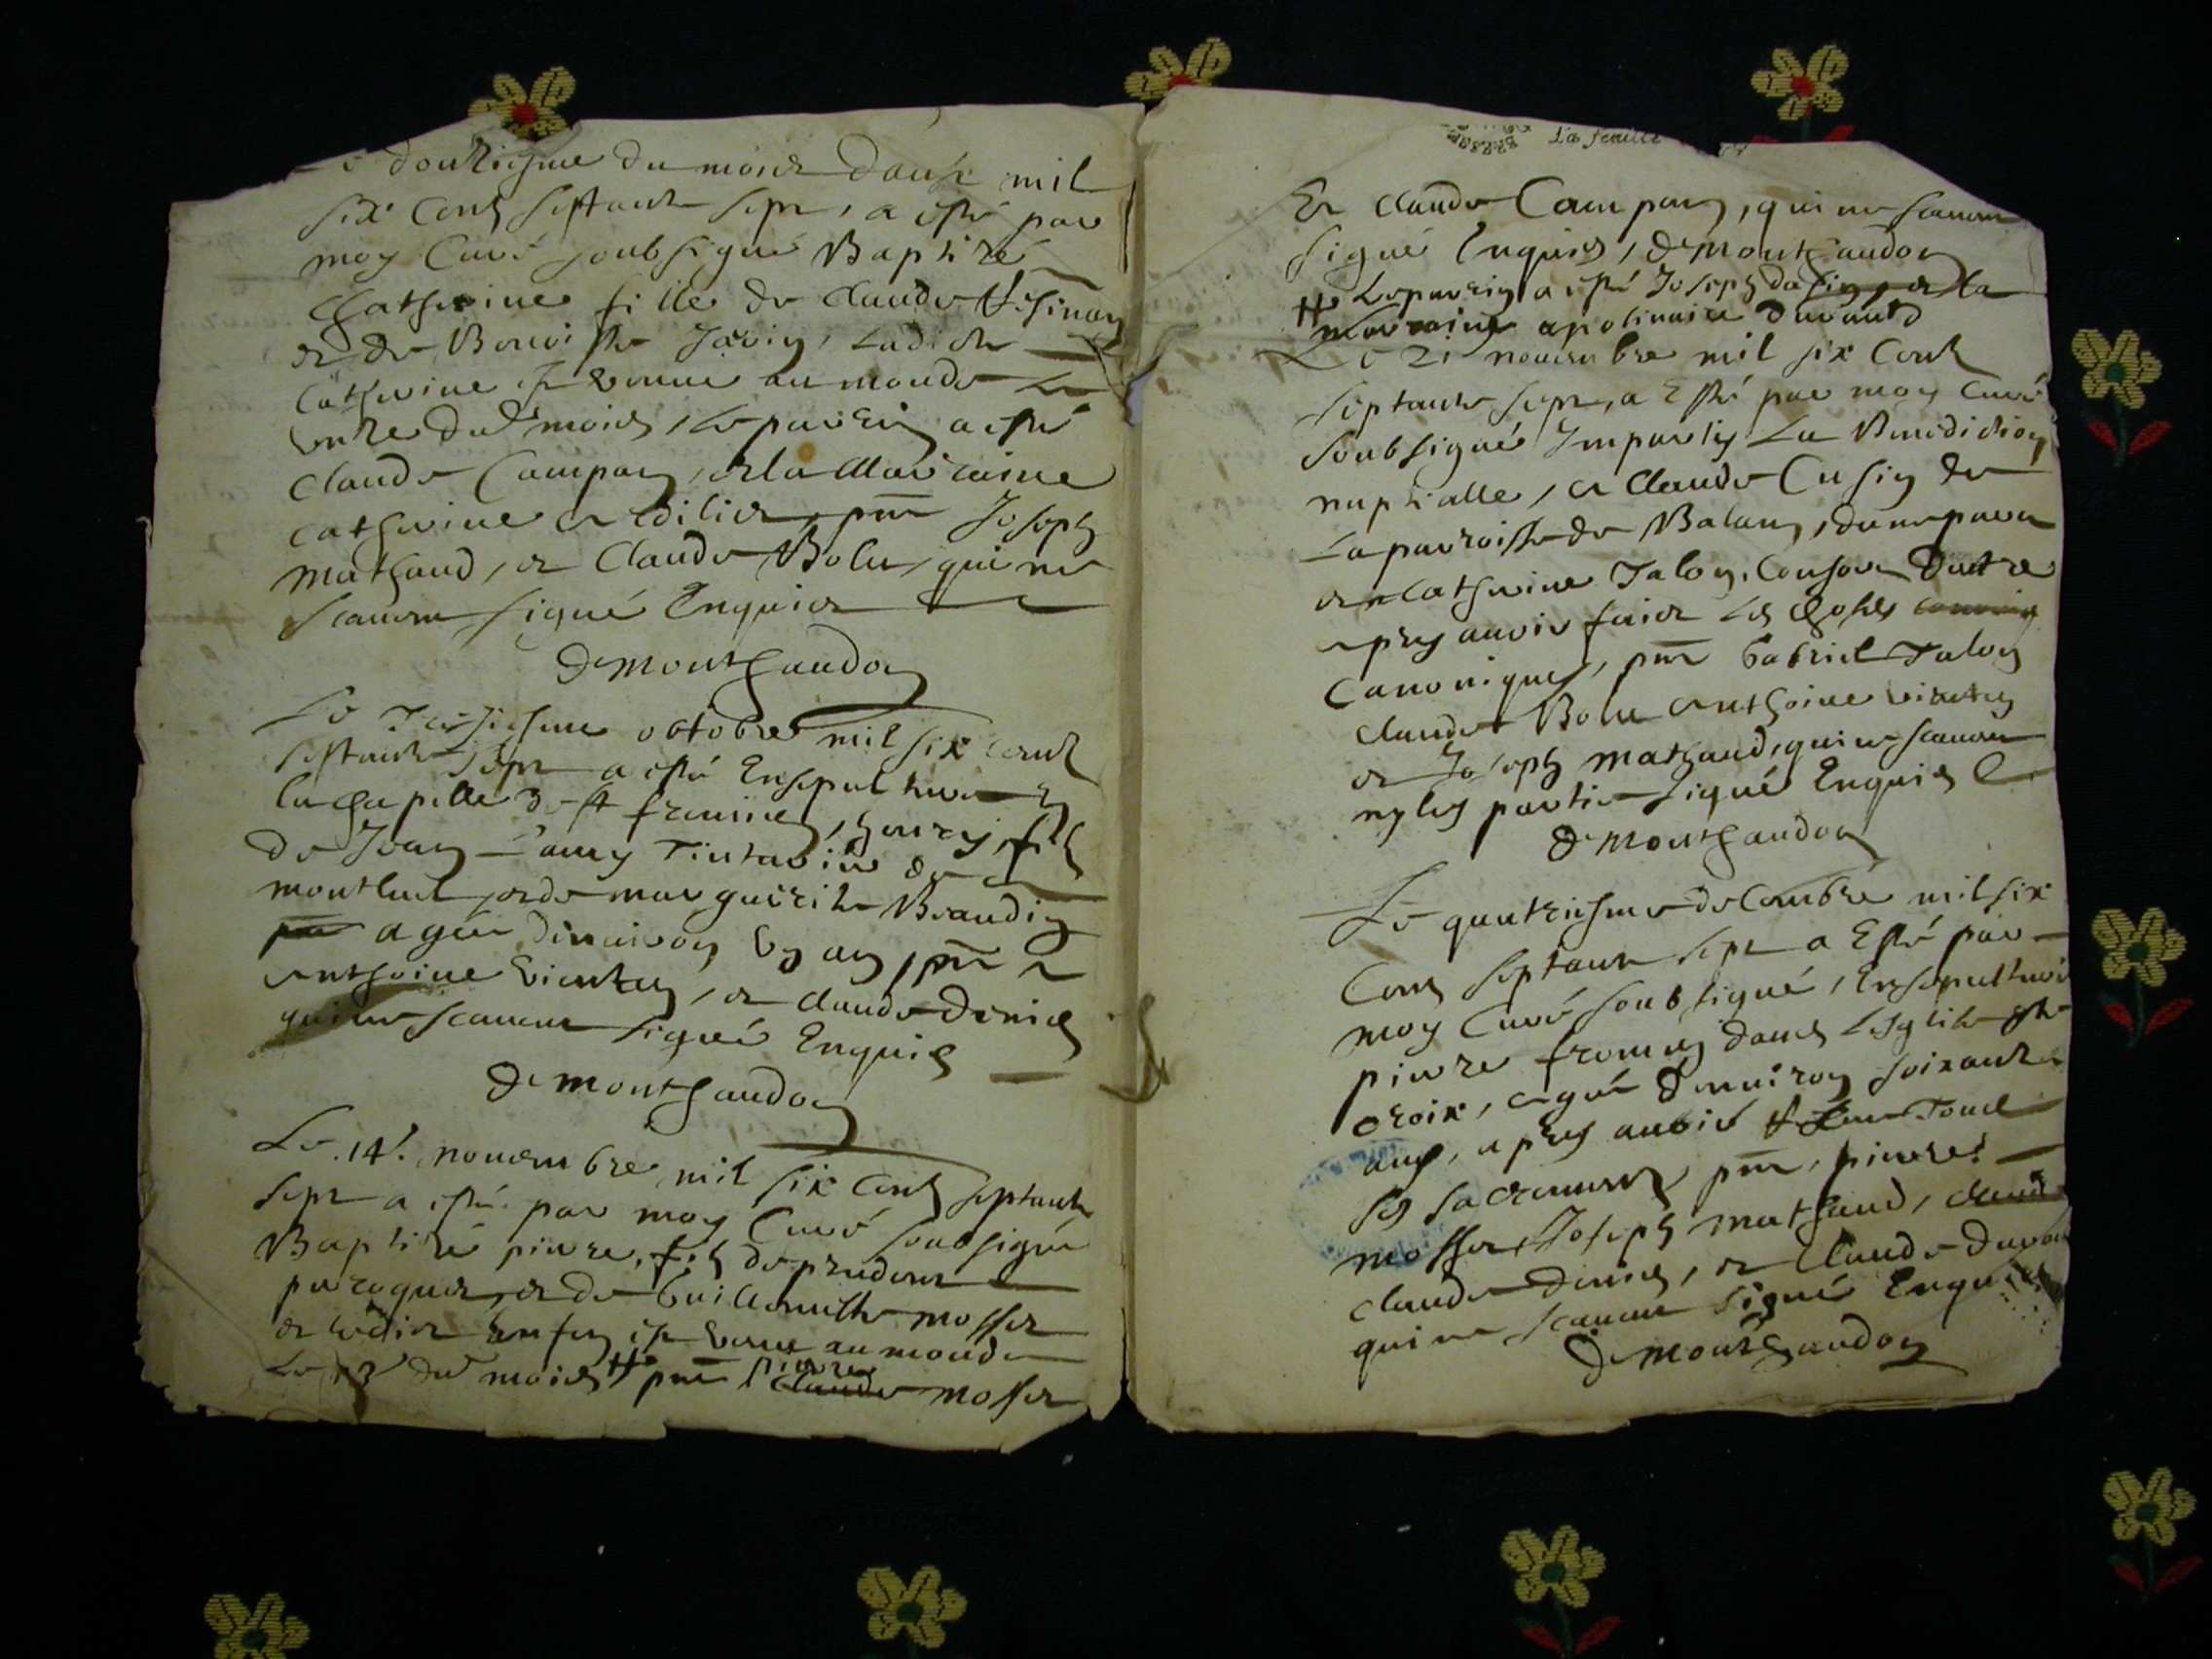 douziesme du mois daust mil
six cens septante sept, a esté par
moy Curé soubsigné Baptizé
Catherine fille de Claude
et de Benoiste Javin, Ladicte
Catherine est venue au monde Le
unze dud mois, Le parrin a esté
Claude Campan, et la Marraine
Catherine Cadilier, pnt Joseph
Mathaud, et Claude Bolu, qui ne
scauent signé Enquis
Demonthaudon
Le octobre mil six cent
septante sept a esté Ensepulturé En
la chapelle de st francois, fils
de Jean Lamy de
montluel, et de marguerite Beaudin
agée denuiron Un an, pnt
Anthoine Vientey, et Claude Denis
qui ne scauent signé Enquis
Demonthaudon
Le 14e. nouembre mil six cens septante
sept a esté par moy Curé soubsigné
Baptizé pierre, fils de prudent
perroquet, et de Guillemette mosser
et Ledict Enfen est venu au monde
Le 13e dud mois # pnt pierre Claude mosser
La feuille
Et Claude Campan, qui ne scauent
signé Enquis, Demonthaudon
# Le parrin a esté Joseph et la
marraine apolinaire Durand
Le 21 nouembre mil six Cens
septante sept, a Esté par moy Curé
soubsigné Imparty La Benediction
nuptialle, a Claude Cusin de
La parroisse de Balan, dune part
et Catherine Talon, Consort Dautre
apres auoir faict Les choses
Canoniques, pnt Gabriel Talon
Claude Bolu Anthoine Vientey
et Joseph mathaud, qui ne scauent
ny les parties signé Enquis
Demonthaudon
Le quatriesme decembre mil six
Cens septante sept a Esté par
moy Curé soubsigné, Ensepulturé
pierre fromen dans Lesglise ste
croix, agé denuiron soixante
ans, apres auoir tous
ses sacrements pnt, pierre
mosser, Joseph mathaud, Claude
Claude Denis, et Claude Durand
qui ne scauent signé Enquis
Demonthaudon